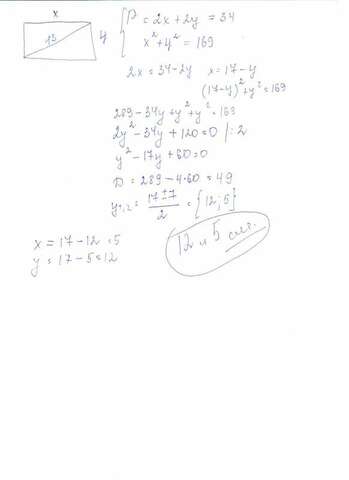 x
13
y
P = 2x + 2y = 34
x² + y² = 169
2x = 34 - 2y x = 17 - y
(17 - y)² + y² = 169
289 - 34y + y² + y² = 169
2y² - 34y + 120 = 0 / : 2
y² - 17y + 60 = 0
D = 289 - 4·60 = 49
y₁,₂ = 17 ± 7 / 2 = {12; 5}
x = 17 - 12 = 5
y = 17 - 5 = 12
12 и 5 см.